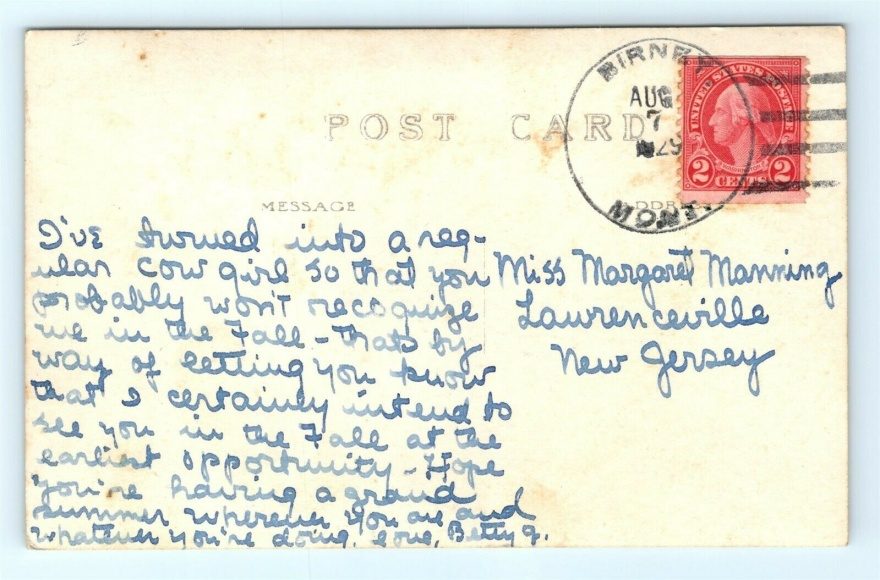 BIRNEY
AUG
7
1929
MONT.
UNITED STATES POSTAGE
2 CENTS 2
POST CARD
MESSAGE
I've turned into a reg-
ular cow girl so that you
probably won't recognize
me in the Fall - thats by
way of letting you know
that I certainly intend to
see you in the Fall at the
earliest opportunity - Hope
you're having a grand
summer wherever you are and
whatever you're doing. Love, Betty J.
Miss Margaret Manning
Lawrenceville
New Jersey